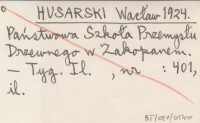 HUSARSKI Wacław 1924.
Państwowa Szkoła Przemysłu
Drzewnego w Zakopanem.
— Tyg. Il. , nr : 401,
il.